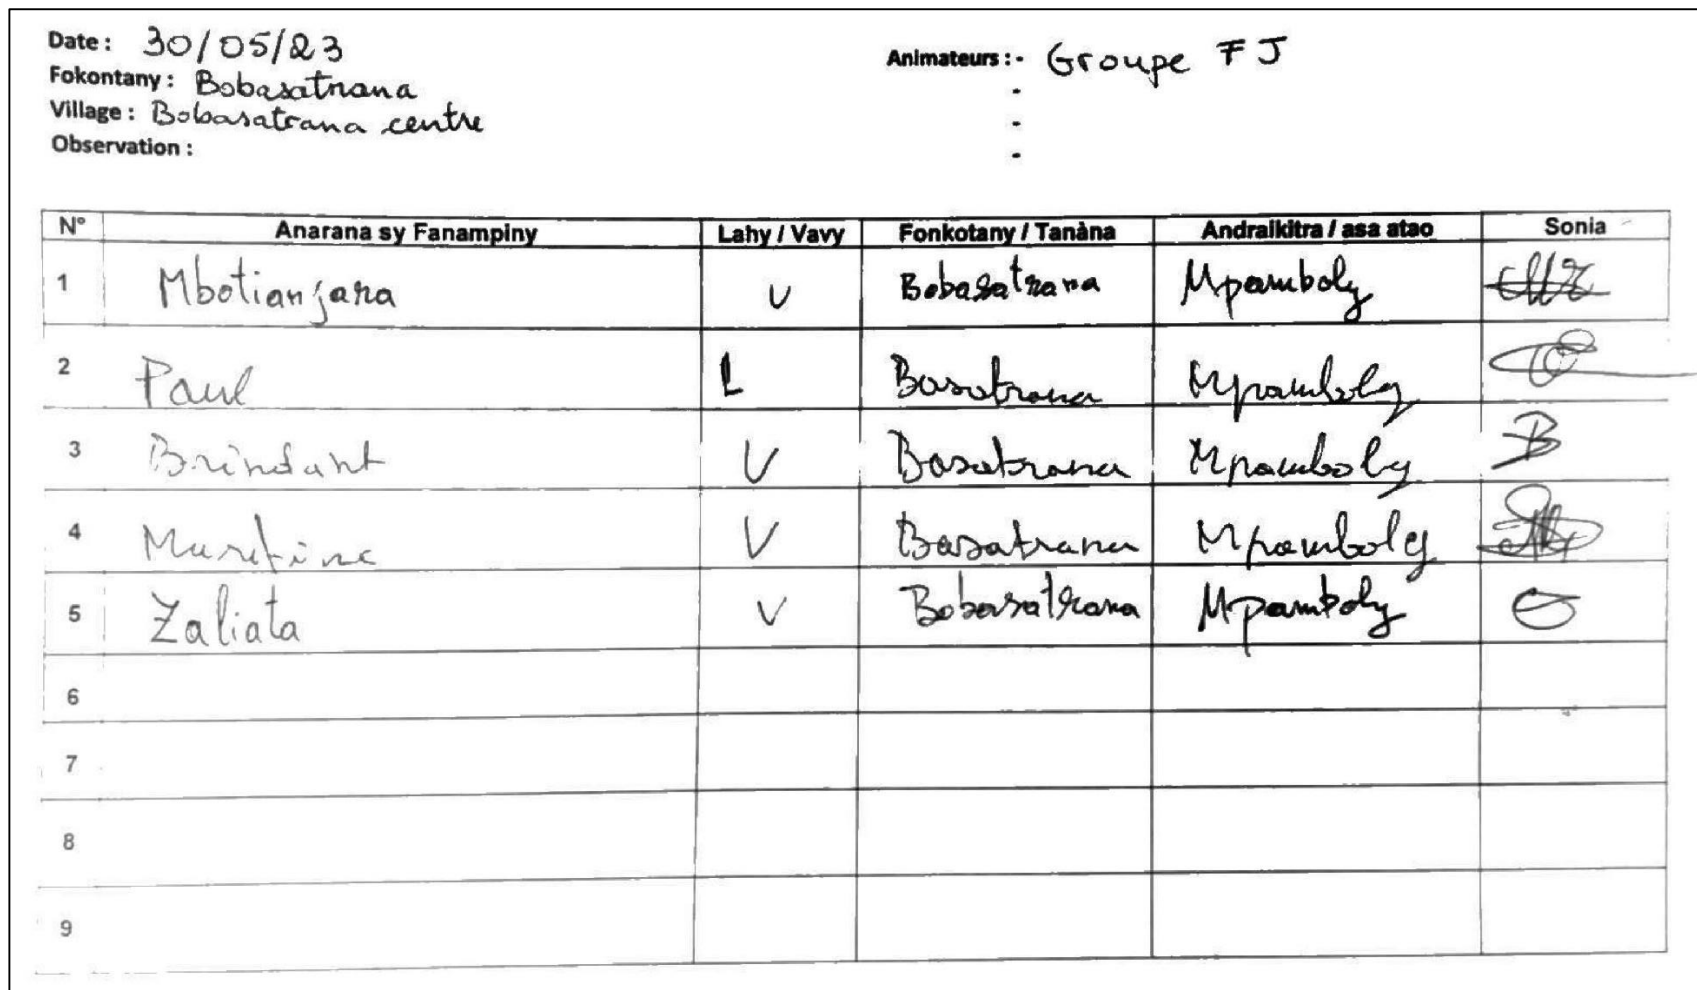 Date : 30/05/23
Fokontany : Bobasatrana
Village : Bobasatrana centre
Observation :
Animateurs : - Groupe FJ
-
-
-
N° Anarana sy Fanampiny Lahy / Vavy Fonkotany / Tanàna Andraikitra / asa atao Sonia
1 Mbotianjara V Bobasatrana Mpamboly
2 Paul L Basatrana Mpamboly
3 Brindant V Basatrana Mpamboly
4 V Basatrana Mpamboly
5 Zaliata V Bobasatrana Mpamboly
6
7
8
9